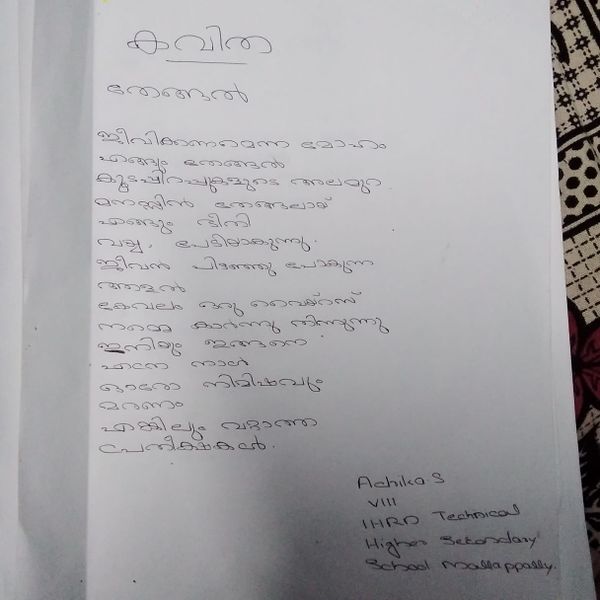 കവിത
തേങ്ങൽ
ജീവിക്കണമെന്ന മോഹം
എങ്ങും തേങ്ങൽ
കൂടപ്പിറപ്പുകളുടെ അലമുറ
മനസ്സിൻ തേങ്ങലായ്
എങ്ങും ഭീതി
വയ്യ, പേടിയാകുന്നു.
ജീവൻ പിടഞ്ഞു പോകുന്ന
ആളൽ
കേവലം ഒരു വൈറസ്
നമ്മെ കാർന്നു തിന്നുന്നു
ഇനിയും ഇങ്ങനെ
എത്ര നാൾ
ഓരോ നിമിഷവും
മരണം
എങ്കിലും വറ്റാത്ത
പ്രതീക്ഷകൾ.
Achika S
VIII
IHRD Technical
Higher Secondary
School Mallappally.